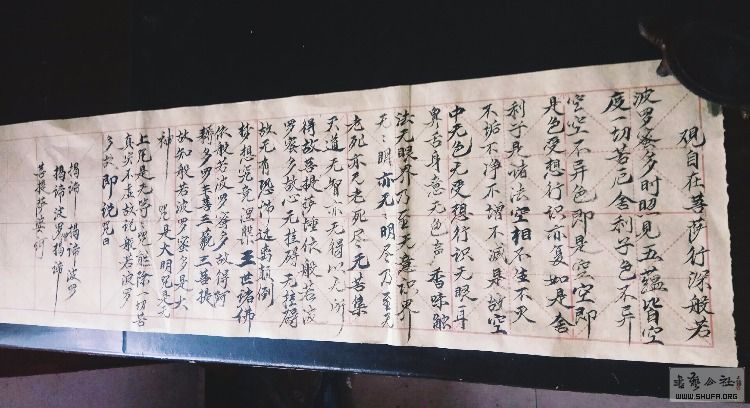 观自在菩萨行深般若
波罗密多时照见五蕴皆空
度一切苦厄舍利子色不异
空空不异色即是空空即
是色受想行识亦复如是舍
利子是诸法空相不生不灭
不垢不净不增不减是故空
中无色无受想行识无眼耳
鼻舌身意无色声香味触
法无眼界乃至无意识界
无无明亦无无明尽乃至无
老死亦无老死尽无苦集
灭道无智亦无得以无所
得故菩提萨埵依般若波
罗密多故心无挂碍无挂碍
故无有恐怖远离颠倒
梦想究竟涅槃三世诸佛
依般若波罗密多故得阿
耨多罗三藐三菩提
故知般若波罗密多是大
神咒是大明咒是无
上咒是无等等咒能除一切苦
真实不虚故说般若波罗
多咒即说咒曰
揭谛揭谛波罗
揭谛波罗僧揭谛
菩提萨婆诃
书艺公社
WWW.SHUFA.ORG